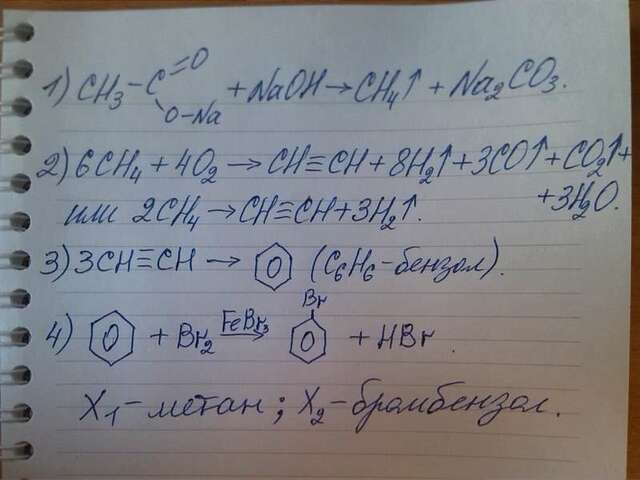 1) CH₃-C=O O-Na + NaOH → CH₄↑ + Na₂CO₃.
2) 6CH₄ + 4O₂ → CH≡CH + 8H₂↑ + 3CO↑ + CO₂↑ +
+ 3H₂O.
или 2CH₄ → CH≡CH + 3H₂↑.
3) 3CH≡CH → (C₆H₆-бензол).
4) + Br₂ FeBr₃ → Br + HBr.
X₁-метан; X₂-бромбензол.